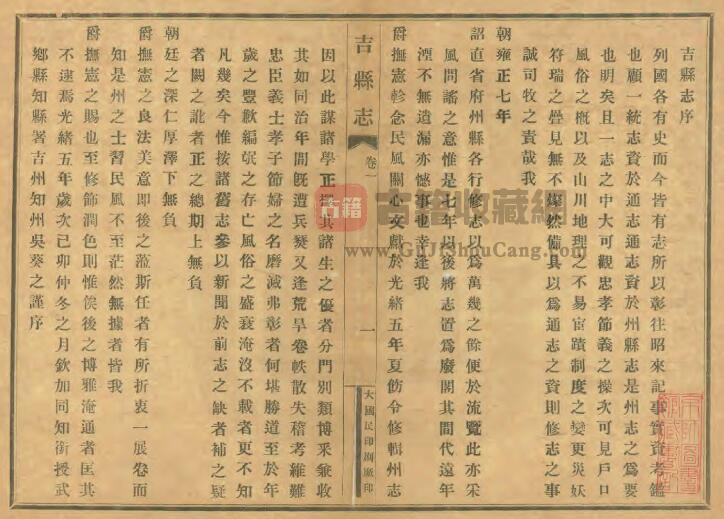 吉縣志序
列國各有史而今皆有志所以彰往昭來記事實資考鑑
也顧一統志資於通志通志資於州縣志是州志之爲要
也明矣且一志之中大可觀忠孝節義之操次可見戶口
風俗之槪以及山川地理之不易宦蹟制度之變更災妖
符瑞之疊見無不燦然備具以爲通志之資則修志之事
誠司牧之責哉我
朝雍正七年
詔直省府州縣各行修志以爲萬幾之餘便於流覽此亦采
風問謠之意惟是七年以後將志置爲廢閣其間代遠年
湮不無遺漏亦憾事也幸逢我
爵撫憲軫念民風關心文獻於光緒五年夏飭令修輯州志
吉縣志
卷一
一
大國民印刷廠印
因以此謀諸學正擇其諸生之優者分門別類博采兼收
其如同治年間旣遭兵燹又逢荒旱卷帙散失稽考維難
忠臣義士孝子節婦之名磨滅弗彰者何堪勝道至於年
歲之豐歉編氓之存亡風俗之盛衰淹沒不載者更不知
凡幾矣今惟按諸舊志參以新聞於前志之缺者補之疑
者闕之訛者正之總期上無負
朝廷之深仁厚澤下無負
爵撫憲之良法美意即後之蒞斯任者有所折衷一展卷而
知是州之士習民風不至茫然無據者皆我
爵撫憲之賜也至修飾潤色則惟俟後之博雅淹通者匡其
不逮焉光緒五年歲次己卯仲冬之月欽加同知銜授武
鄉縣知縣署吉州知州吳葵之謹序
古籍
古籍收藏網
www.GuJiShouCang.com